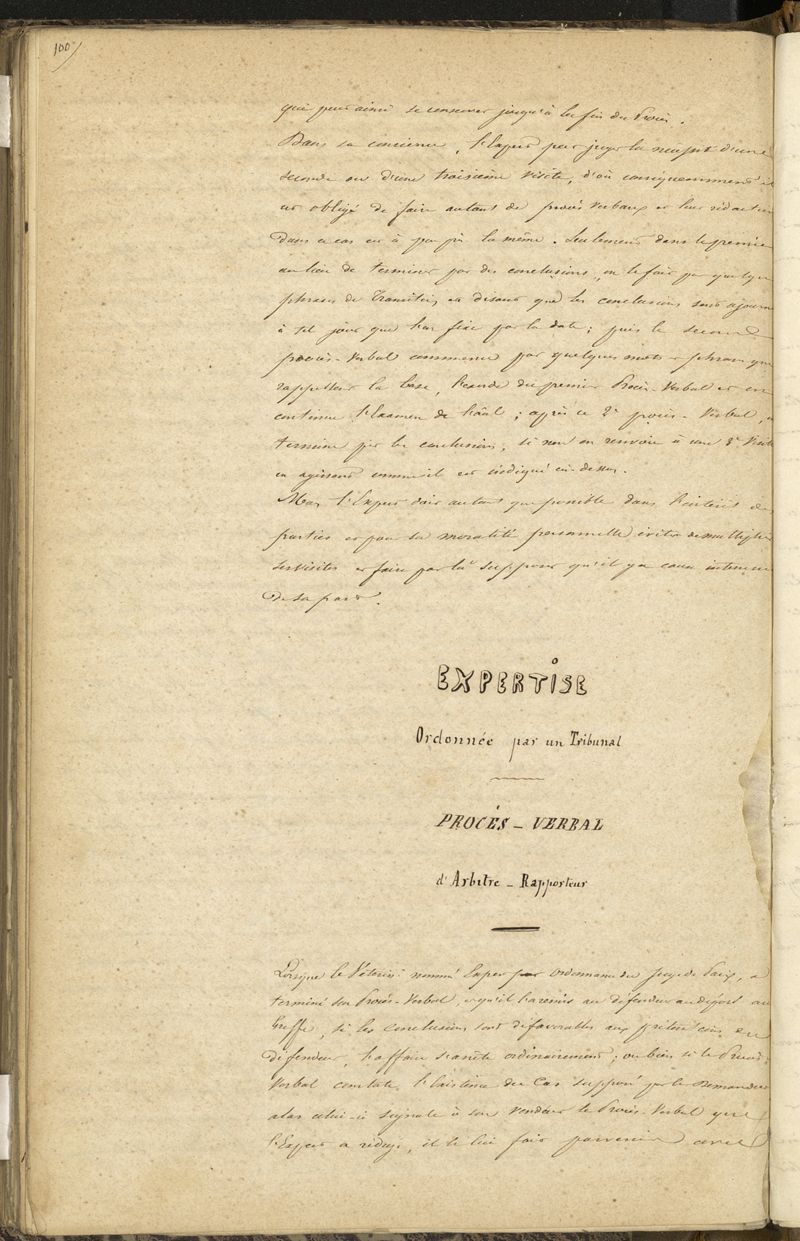 100
qui peut ainsi se conserver jusqu'à la fin du Procès.
Dans sa conscience, l'Expert peut juger la nécessité d'une
seconde ou d'une troisième visite, d'où conséquemment il
est obligé de faire autant de procès verbaux et leur rédaction
dans ce cas est à peu près la même. Seulement dans le premier
au lieu de terminer par des conclusions, on le fait par quelques
phrases de transition en disant que les conclusions sont ajournées
à tel jour que l'on fixe par la date; puis le second
procès-verbal commence par quelques mots et phrases qui
rappellent la base, du premier Procès-Verbal et on
continue l'Examen de ; après ce 2e procès-Verbal, on
termine par les conclusions, si non on renvoie à une 3e Visite
en agissant comme il est indiqué ci-dessus.
Mais l'Expert doit autant que possible dans l'intérêt des
parties et pour sa moralité personnelle éviter de multiplier
ses visites et faire par là supposer qu'il y a
de sa part.
EXPERTISE
Ordonnée par un Tribunal
PROCÈS - VERBAL
d'Arbitre - Rapporteur
Lorsque le Vétérinre nommé Expert par ordonnance du juge de Paix, a
terminé son Procès-Verbal, et qu'il l'a remis au défendeur ou déposé au
Greffe, si les conclusions sont défavorables aux prétentions du
défendeur, l'affaire s'arrête ordinairement; ou bien si le Procès-
Verbal constate l'Existence du Cas supposé par le Demandeur
alors celui-ci signale à son vendeur le Procès-Verbal que
l'Expert a rédigé, il le lui fait parvenir avec